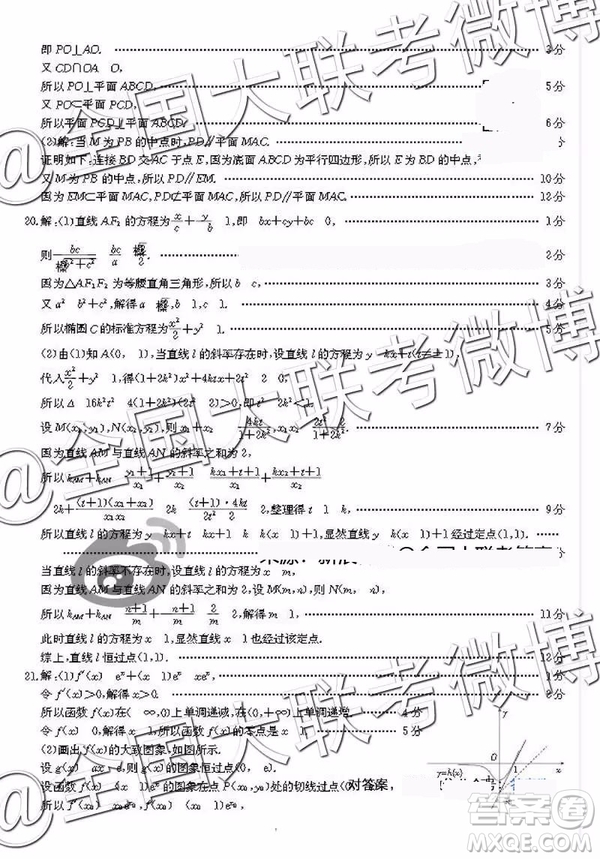 即 PO⊥AO. 3分
又 CD∩OA O,
所以 PO⊥平面 ABCD. 5分
又 PO⊂平面 PCD,
所以平面 PCD⊥平面 ABCD.
(2)解:当 M 为 PB 的中点时,PD∥平面 MAC.
证明如下:连接 BD 交 AC 于点 E,因为底面 ABCD 为平行四边形,所以 E 为 BD 的中点,
又 M 为 PB 的中点,所以 PD∥EM. 10分
因为 EM⊂平面 MAC,PD⊄平面 MAC,所以 PD∥平面 MAC. 12分
20.解:(1)直线 AF₂ 的方程为 x/c + y/b 1,即 bx+cy+bc 0, 1分
则 2分
因为△AF₁F₂ 为等腰直角三角形,所以 b c,
又 a² b²+c²,解得 a ,b 1,c 1. 4分
所以椭圆 C 的标准方程为 x²/2 + y² 1. 5分
(2)由(1)知 A(0, 1),当直线 l 的斜率存在时,设直线 l 的方程为 y kx+t(t≠ 1),
代入 x²/2 + y² 1,得(1+2k²)x²+4ktx+2t² 2 0,
所以 Δ 16k²t² 4(1+2k²)(2t² 2)>0,即 t² 2k²<1.
设 M(x₁,y₁),N(x₂,y₂),则 x₁+x₂ 4kt/1+2k², x₁x₂ 2t² 2/1+2k². 7分
因为直线 AM 与直线 AN 的斜率之和为 2,
所以 k_AM+k_AN y₁+1/x₁ + y₂+1/x₂ kx₁+t+1/x₁ + kx₂+t+1/x₂
2k+ (t+1)(x₁+x₂)/x₁x₂ 2k (t+1)·4kt/2t² 2 2,整理得 t 1 k, 9分
所以直线 l 的方程为 y kx+t kx+1 k k(x 1)+1,显然直线 y k(x 1)+1 经过定点(1,1).
当直线 l 的斜率不存在时,设直线 l 的方程为 x m,
因为直线 AM 与直线 AN 的斜率之和为 2,设 M(m,n),则 N(m, n),
所以 k_AM+k_AN n+1/m + n+1/m 2/m 2,解得 m 1, 11分
此时直线 l 的方程为 x 1,显然直线 x 1 也经过该定点.
综上,直线 l 恒过点(1,1). 12分
21.解:(1)f′(x) eˣ+(x 1)eˣ xeˣ, 1分
令 f′(x)>0,解得 x>0. 2分
所以函数 f(x)在( ∞,0)上单调递减,在(0,+∞)上单调递增. 4分
令 f(x) 0,解得 x 1,所以函数 f(x)的零点是 x 1. 5分
(2)画出 f(x)的大致图象,如图所示.
设 g(x) ax e,则 g(x)的图象恒过点(0, e).
设函数 f(x) (x 1)eˣ 的图象在点 P(x₀,y₀)处的切线过点(0, 对答案,
所以 f′(x₀) x₀e^x₀,f(x₀) (x₀ 1)e^x₀,
y
O
1
x
y=h(x)
@全国大联考微博
@全国大联考微博
@全国大联考微博
答案圈
MXQE.COM